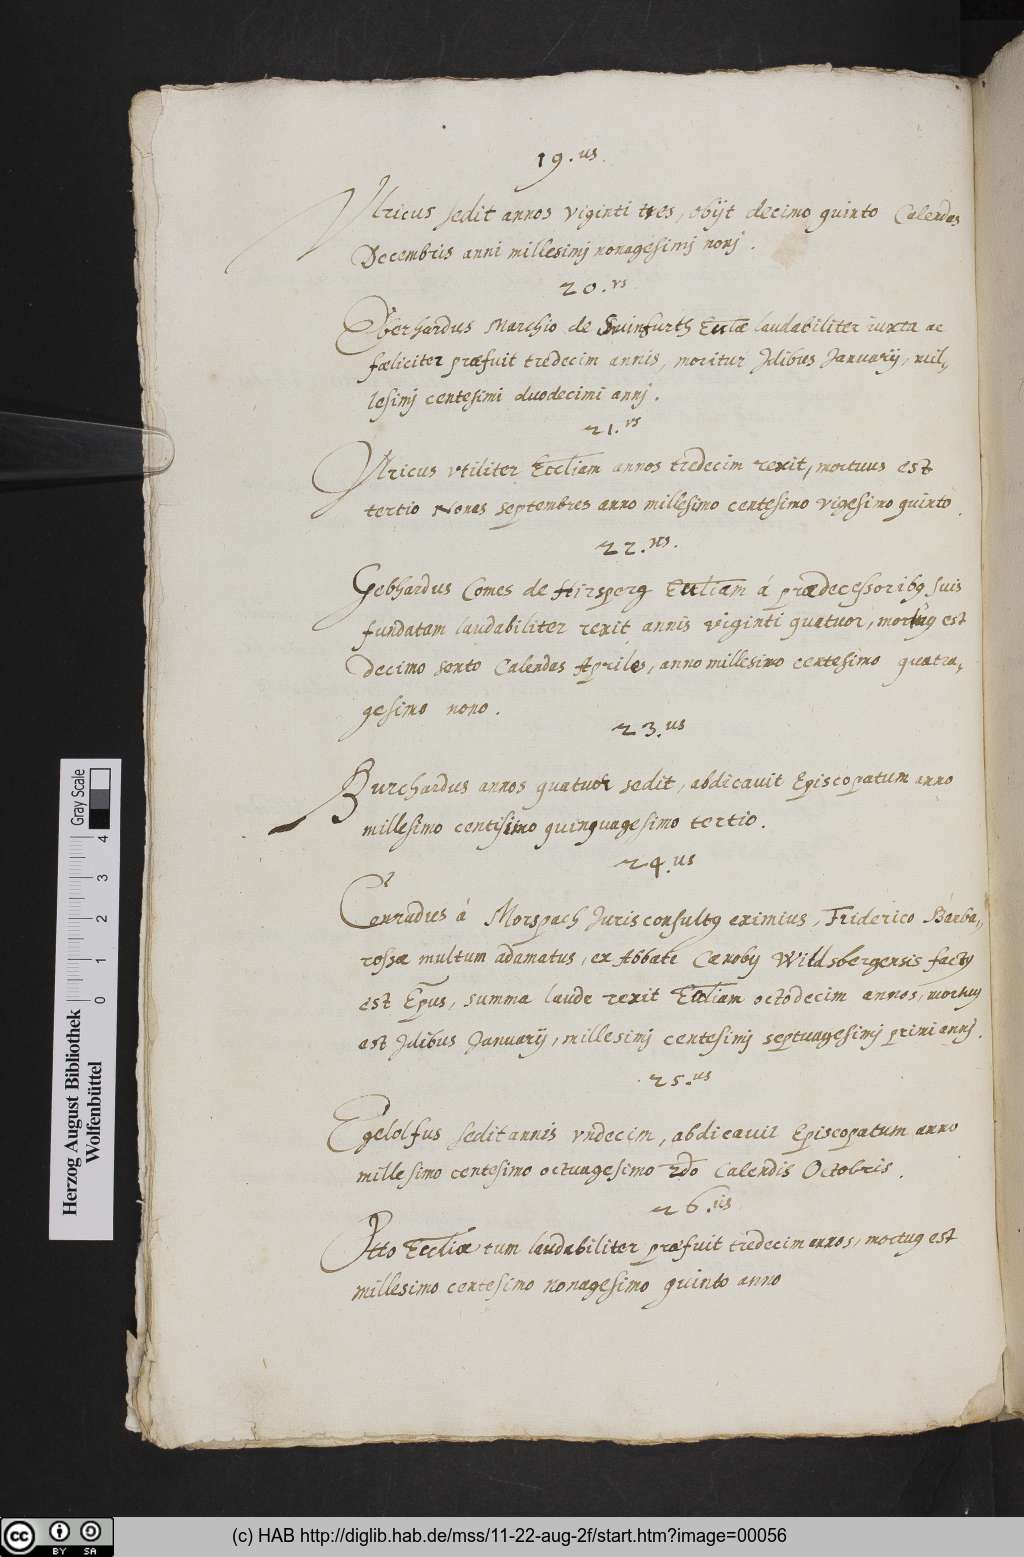 19.us
Vlricus sedit annos viginti tres, obijt decimo quinto Calendas
Decembris anni millesimj nonagesimj nonj.
20.vs
Eberhardus Marchio de Suinfurth Ecclae laudabiliter iuxta ac
faeliciter praefuit tredecim annis, moritur Jdibus Januarij, mil¬
lesimj centesimi duodecimi annj.
21.vs
Vlricus vtiliter Eccliam annos tredecim rexit, mortuus est
tertio Nonas septembres anno millesimo centesimo vigesimo quinto.
22.us.
Gebhardus Comes de Hirsperg Eccliam á praedecessoribq suis
fundatam laudabiliter rexit annis viginti quatuor, mortuq est
decimo sexto Calendas Apriles, anno millesimo centesimo quatra¬
gesimo nono.
23.us
Burchardus annos quatuor sedit, abdicauit Episcopatum anno
millesimo centisimo quinquagesimo tertio.
24.us
Conradus á Morspach Jurisconsultq eximius, Friderico Barba¬
rossae multum adamatus, ex Abbate Caenobij Wildsbergensis factq
est Epus, summa laude rexit Eccliam octodecim annos, mortuq
est Jdibus Januarij, millesimj centesimj septuagesimj primi annj.
25.us
Egelolfus sedit annis vndecim, abdicauit Episcopatum anno
millesimo centesimo octuagesimo 2do Calendis Octobris.
26.us
Otto Eccliae tum laudabiliter praefuit tredecim annos, mortuq est
millesimo centesimo nonagesimo quinto anno
Herzog August Bibliothek
Wolfenbüttel
Gray Scale
0 1 2 3 4
cc BY SA
(c) HAB http://diglib.hab.de/mss/11-22-aug-2f/start.htm?image=00056